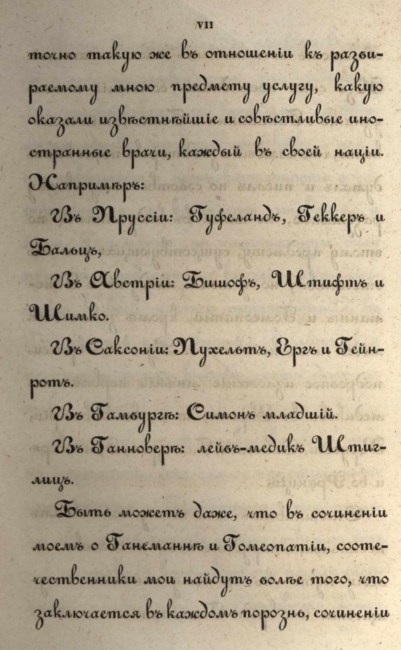 VII
точно такую же въ отношеніи къ разби-
раемому мною предмету услугу, какую
оказали извѣстнѣйшіе и совѣстливые ино-
странные врачи, каждый въ своей націи.
Напримѣръ:
Въ Пруссіи: Гуфеландъ, Геккеръ и
Бальцъ,
Въ Австріи: Бишофъ, Штифтъ и
Шимко.
Въ Саксоніи: Пухельтъ, Ергъ и Гейн-
ротъ.
Въ Гамбургѣ: Симонъ младшій.
Въ Ганноверѣ: лейбъ-медикъ Штиг-
лицъ.
Быть можетъ даже, что въ сочиненіи
моемъ о Ганеманнѣ и Гомеопатіи, сооте-
чественники мои найдутъ болѣе того, что
заключается въ каждомъ порознь, сочиненіи